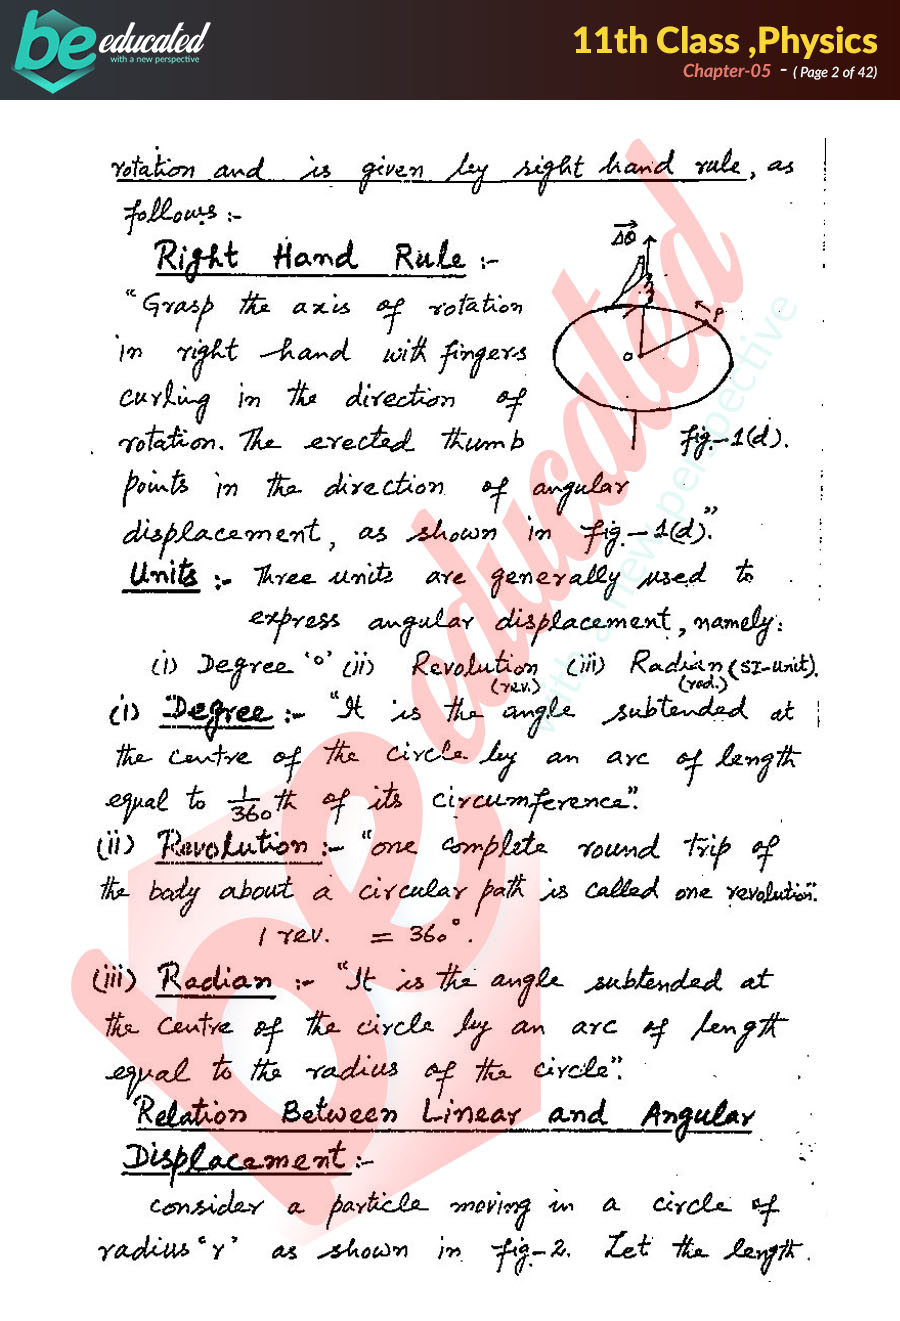 be educated
with a new perspective
11th Class ,Physics
Chapter-05 - ( Page 2 of 42)
rotation and is given by right hand rule, as
follows :-
Right Hand Rule :-
"Grasp the axis of rotation
in right hand with fingers
curling in the direction of
rotation. The erected thumb
points in the direction of angular
displacement, as shown in fig.-1(d)."
Δθ
P
O
fig.-1(d).
Units :- Three units are generally used to
express angular displacement, namely:
(i) Degree 'o' (ii) Revolution (rev.) (iii) Radian (rad.) (SI-unit).
(i) "Degree :- "It is the angle subtended at
the centre of the circle by an arc of length
equal to 1/360 th of its circumference".
(ii) Revolution :- "one complete round trip of
the body about a circular path is called one revolution".
1 rev. = 360°.
(iii) Radian :- "It is the angle subtended at
the centre of the circle by an arc of length
equal to the radius of the circle".
Relation Between Linear and Angular
Displacement :-
consider a particle moving in a circle of
radius 'r' as shown in fig-2. Let the length
be educated
with a new perspective